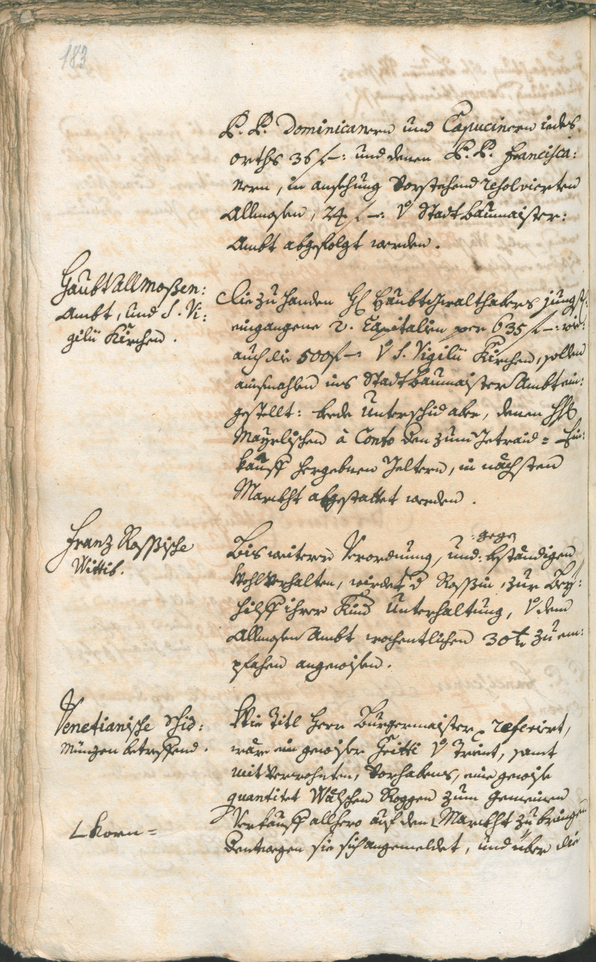 183
P. P. Dominicanern und Capucinern iedes
orths 36 f —: und denen P. P. Francisca:
nern, in ansehung vorstehend resolvierten
Allmosen, 24 f —: v Stadtbaumaister:
Ambt abgefolgt werden.
HaubtAllmoßen:
Ambt, und S. Vi:
gilii Kirchen.
die zu handen H Haubtgwalthabers jüngst
eingangene 2. Capitalien per 635 f —: wie
auch die 500 f —: v S. Vigilii Kirchen, sollen
ainsmahlen ins Stadtbaumaister Ambt ein:
gestellt: beede Unterschid aber, denen
Mayrlischen à Conto den zum Getraid = Ein:
kauff hergebnen Geltern, in nächsten
Marckht abgestattet werden.
Franz Rossische
Wittib.
Bis weitern Verordnung, und: gegen beständigen
Wohlverhalten, wirdet d Rossin, zur Bey:
hilff ihrer Kind Unterhaltung, v dem
Allmosen Ambt wochentlichen 30 x zu em:
pfahen angewisen.
Venetianische
Münzen betreffend.
Wie Titl Herr Burgermaister referiert,
wäre ein gewisser v Trient, samt
mit verwohnten, Vorhabens, eine gewisse
quantitet Wälschen Roggen zum gemeinen
Verkauff allhero auf den Marckht zu bringen
L Korn =
dentwegen sie sich angemeldet, und über die